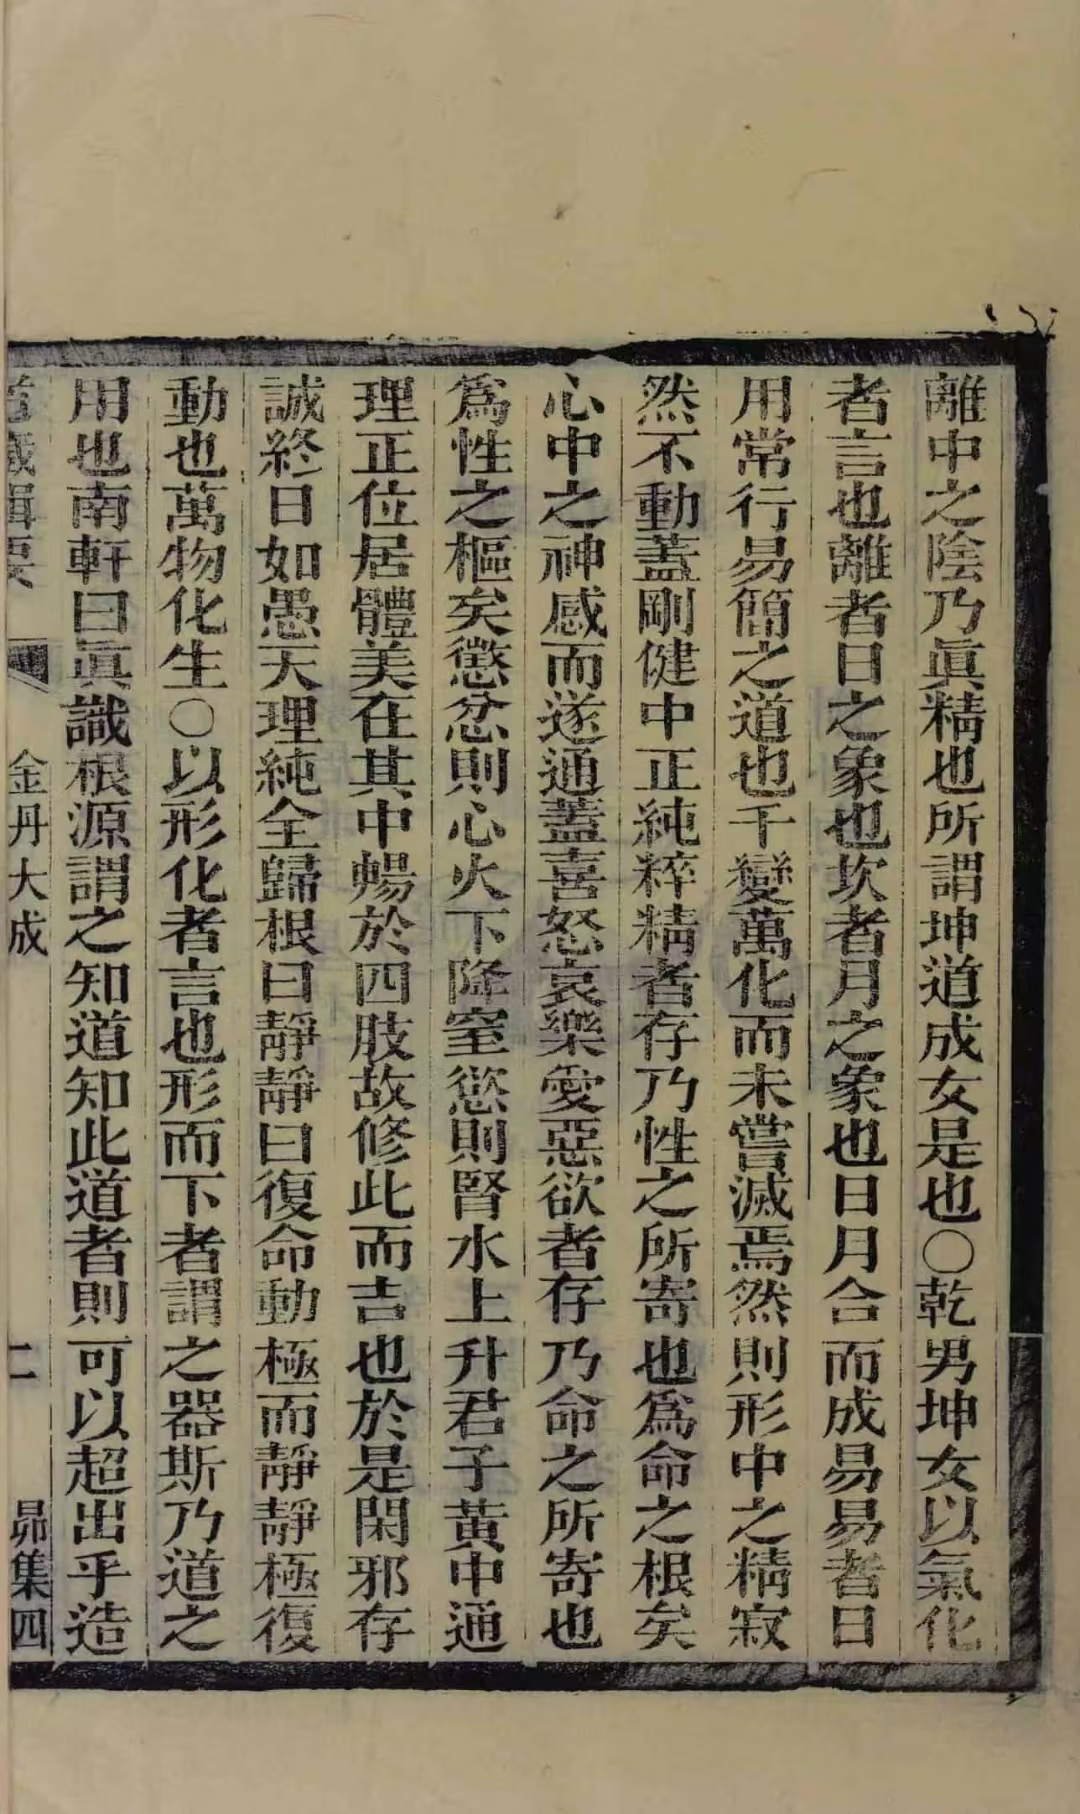 離中之陰乃眞精也所謂坤道成女是也〇乾男坤女以氣化
者言也離者日之象也坎者月之象也日月合而成易易者日
用常行易簡之道也千變萬化而未嘗滅焉然則形中之精寂
然不動蓋剛健中正純粹精者存乃性之所寄也爲命之根矣
心中之神感而遂通蓋喜怒哀樂愛惡欲者存乃命之所寄也
爲性之樞矣懲忿則心火下降窒慾則腎水上升君子黃中通
理正位居體美在其中暢於四肢故修此而吉也於是閑邪存
誠終日如愚天理純全歸根曰靜靜曰復命動極而靜靜極復
動也萬物化生〇以形化者言也形而下者謂之器斯乃道之
用也南軒曰眞識根源謂之知道知此道者則可以超出乎造
道藏輯要 金丹大成 二 昴集四